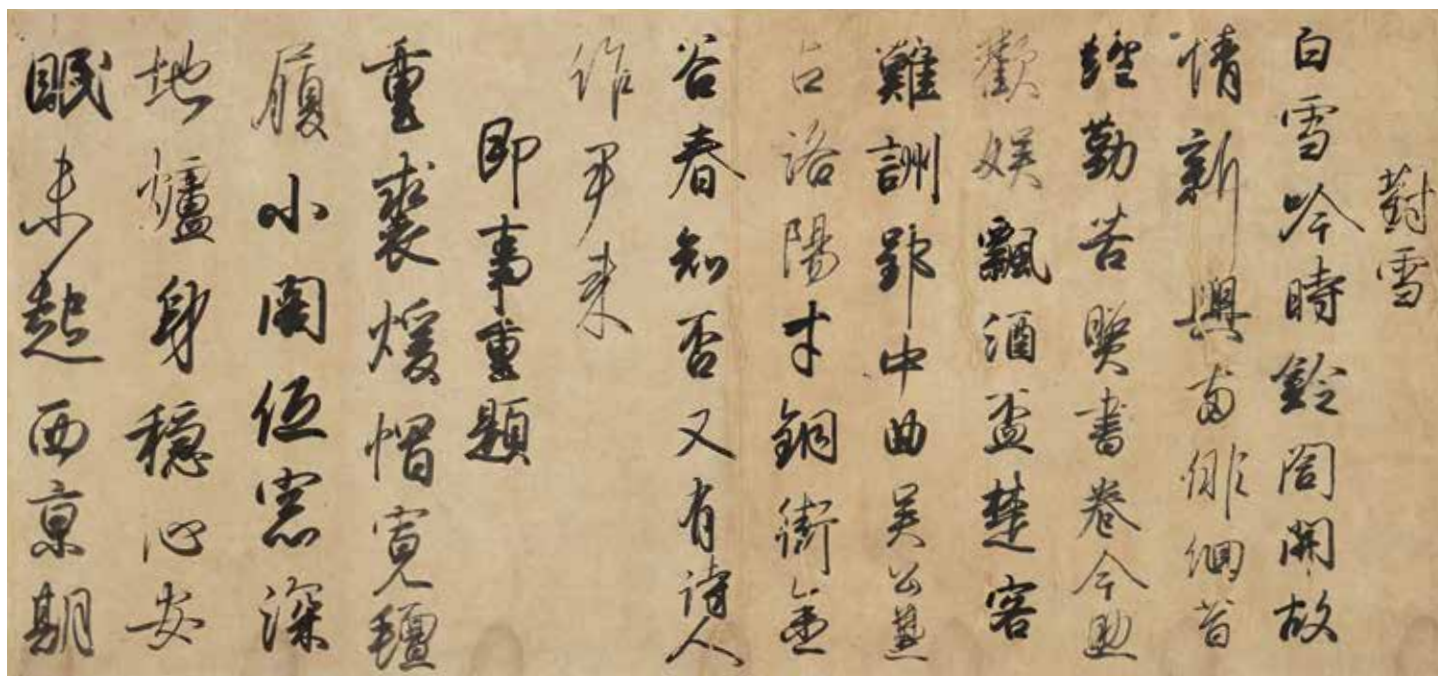 對雪
白雪吟時鈴閣開故
情新興兩俳佪昔
經勤苦照書卷今助
歡娱飄酒盃楚客
難詶郢中曲吴公兼
占洛陽才銅街金
谷春知否又有詩人
作尹來
即事重題
重裘煖帽寬氊
履小閣低窓深
地爐身穩心安
眠未起西京期